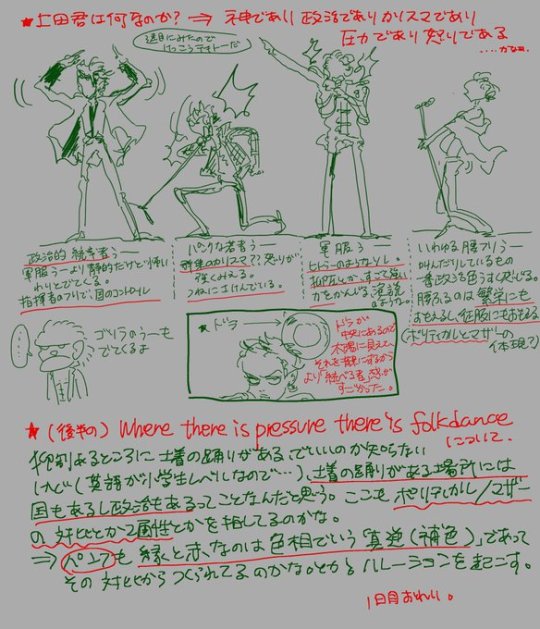 ★上田君は何なのか? ⇒ 神であり政治でありカリスマであり
圧力であり怒りである
....かなぁ。
週目にみたので
けっこうテキトーだ
政治的統率者う—
軍服う—より静的だけど怖い
わりとでてくる。
指揮者のフリで国のコントロール
パンクな若者う—
群集のカリスマ??怒りが
強くみえる。
つねにさけんでいる。
軍服う—
ヒトラーのようなソレ。
抑圧とか、すごく強い
力をかんじる演説
のような。
いわゆる腰フリう—
叫んだりしているもの
番政治を色こく感じる。
腰ふるのは繁栄にも
おもえるし征服にもおもえる
(ポリティカルとマザーの
体現?)
....
ゴリラのうーも
でてくるよ
★ドラ
ドラが
中央にあるので
太陽に見えて、
それを背にするから
より「統べる者」感が
すごかった。
★(後半の) Where there is pressure there's folkdance
について.
抑制あるところに土着の踊りがある、でいいのか知らない
けど(英語が小学生レベルなので…)、土着の踊りがある場所には
国もあるし政治もあるってことなんだと思う。ここも ポリティカル/マザー
の対比とか2面性とかを指してるのかな。
⇒ ペンても 緑と赤、なのは色相でいう「真逆(補色)」であって
その対比からつくられてるのかなとか。ハレーションを起こす。
1日目おわい。